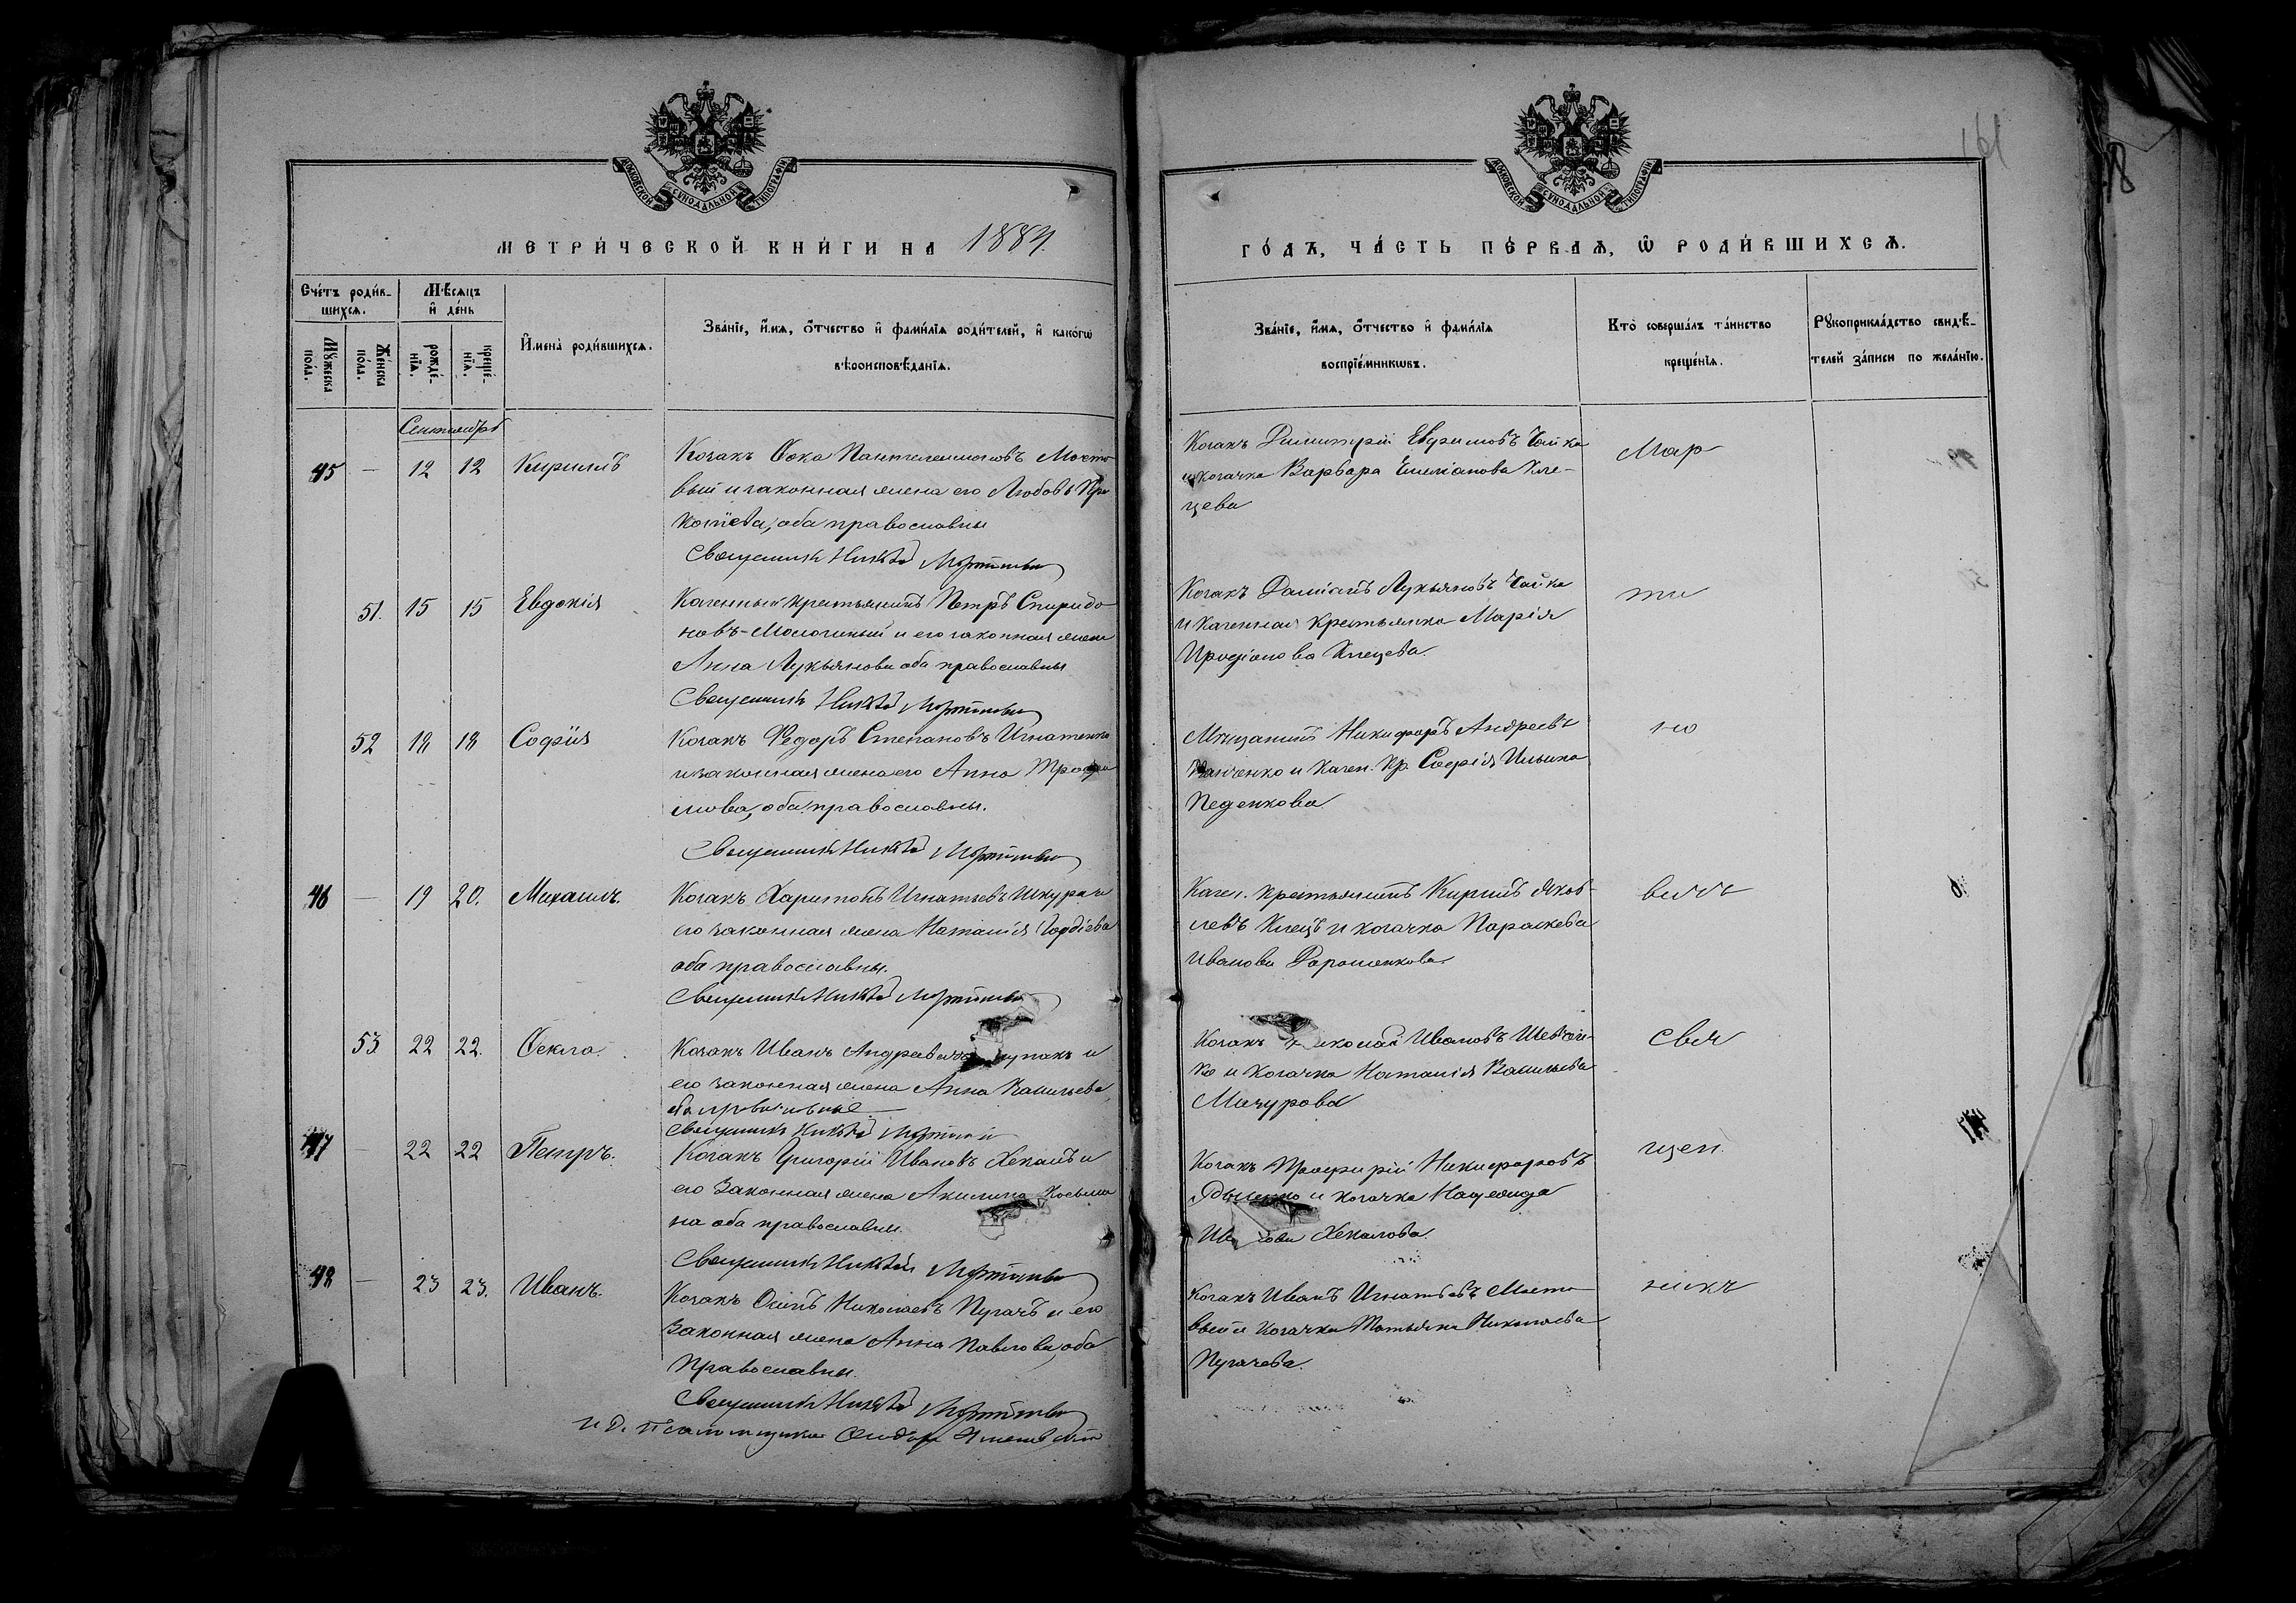 161
МОСКОВСКОЙ СѴНОДАЛЬНОЙ ТИПОГРАФІИ
МОСКОВСКОЙ СѴНОДАЛЬНОЙ ТИПОГРАФІИ
МЕТРИ́ЧЕСКОЙ КНИ́ГИ НА 1884.
ГО́ДЪ, ЧА́СТЬ ПЕ́РВАѦ, Ѿ РОДИ́ВШИХСѦ.
Сче́тъ роди́в-
шихсѧ.
Мꙋ́жеска по́ла.
Же́нска по́ла.
Мѣ́сѧцъ и҆ де́нь
рожде́-
нїѧ.
креще́-
нїѧ.
И҆мена̀ роди́вшихсѧ.
Зва́нїе, и҆́мѧ, ѻ҆́тчество и҆ фами́лїѧ роди́телей, и҆ како́гѡ
вѣроисповѣ́данїѧ.
Зва́нїе, и҆́мѧ, ѻ҆́тчество и҆ фами́лїѧ
воспрїе́мникѡвъ.
Кто̀ соверша́лъ та́инство
креще́нїѧ.
Рꙋкоприкла́дство свидѣ́-
телей за́писи по жела́нїю.
Сентябрь
45 — 12 12 Кирилъ
Козакъ Ѳока Пантелеимоновъ Мосто
вый и законная жена его Любовь Про
копіева, оба православны
Священникъ Никита
Козакъ Димитрій Евфимовъ Чайка
и козачка Варвара Емеліанова Кле-
цева
Мар
51. 15 15 Евдокія
Казенный крестьянинъ Петръ Спиридо
новъ и его законная жена
Анна Лукьянова оба православны
Священникъ Никита
Козакъ Даміанъ Лукьяновъ Чайка
и казенная крестьянка Марія
Клецева.
ти
52 18 18 Софія
Козакъ Ѳедоръ Степановъ Игнатенко
и законная жена его Анна Трофи
мова, оба православны.
Священникъ Никита
Мѣщанинъ Никифоръ Андреевъ
и казен. кр. Софія Ильина
Педенкова
но
46 — 19 20. Михаилъ.
Козакъ Харитонъ Игнатьевъ Шкура и
его законная жена Наталія Гордіева
оба православны.
Священникъ Никита
Казен. крестьянинъ Кирилъ Яков-
левъ Клецъ и козачка Параскева
Иванова Дорошенкова
вичъ
53 22 22. Ѳекла.
Козакъ Иванъ Андреевъ и
его законная жена Анна Васильева,
оба православные
Священникъ Никита
Козакъ Николай Ивановъ Шевчен-
ко и козачка Наталія Васильева
Мазурова
свя
47 — 22 22 Петръ.
Козакъ Григорій Ивановъ Хекалъ и
его законная жена Акилина Косьми
на оба православны.
Священникъ Никита
Козакъ Никифоровъ
и козачка Надежда
Иванова Хекалова.
щен.
48 — 23 23. Иванъ.
Козакъ Осипъ Николаевъ Пугачъ и его
законная жена Анна Павлова, оба
православны.
Священникъ Никита
Козакъ Иванъ Игнатьевъ Мосто
вый и козачка Татьяна Николаева
Пугачева.
никъ
И. д. псаломщика